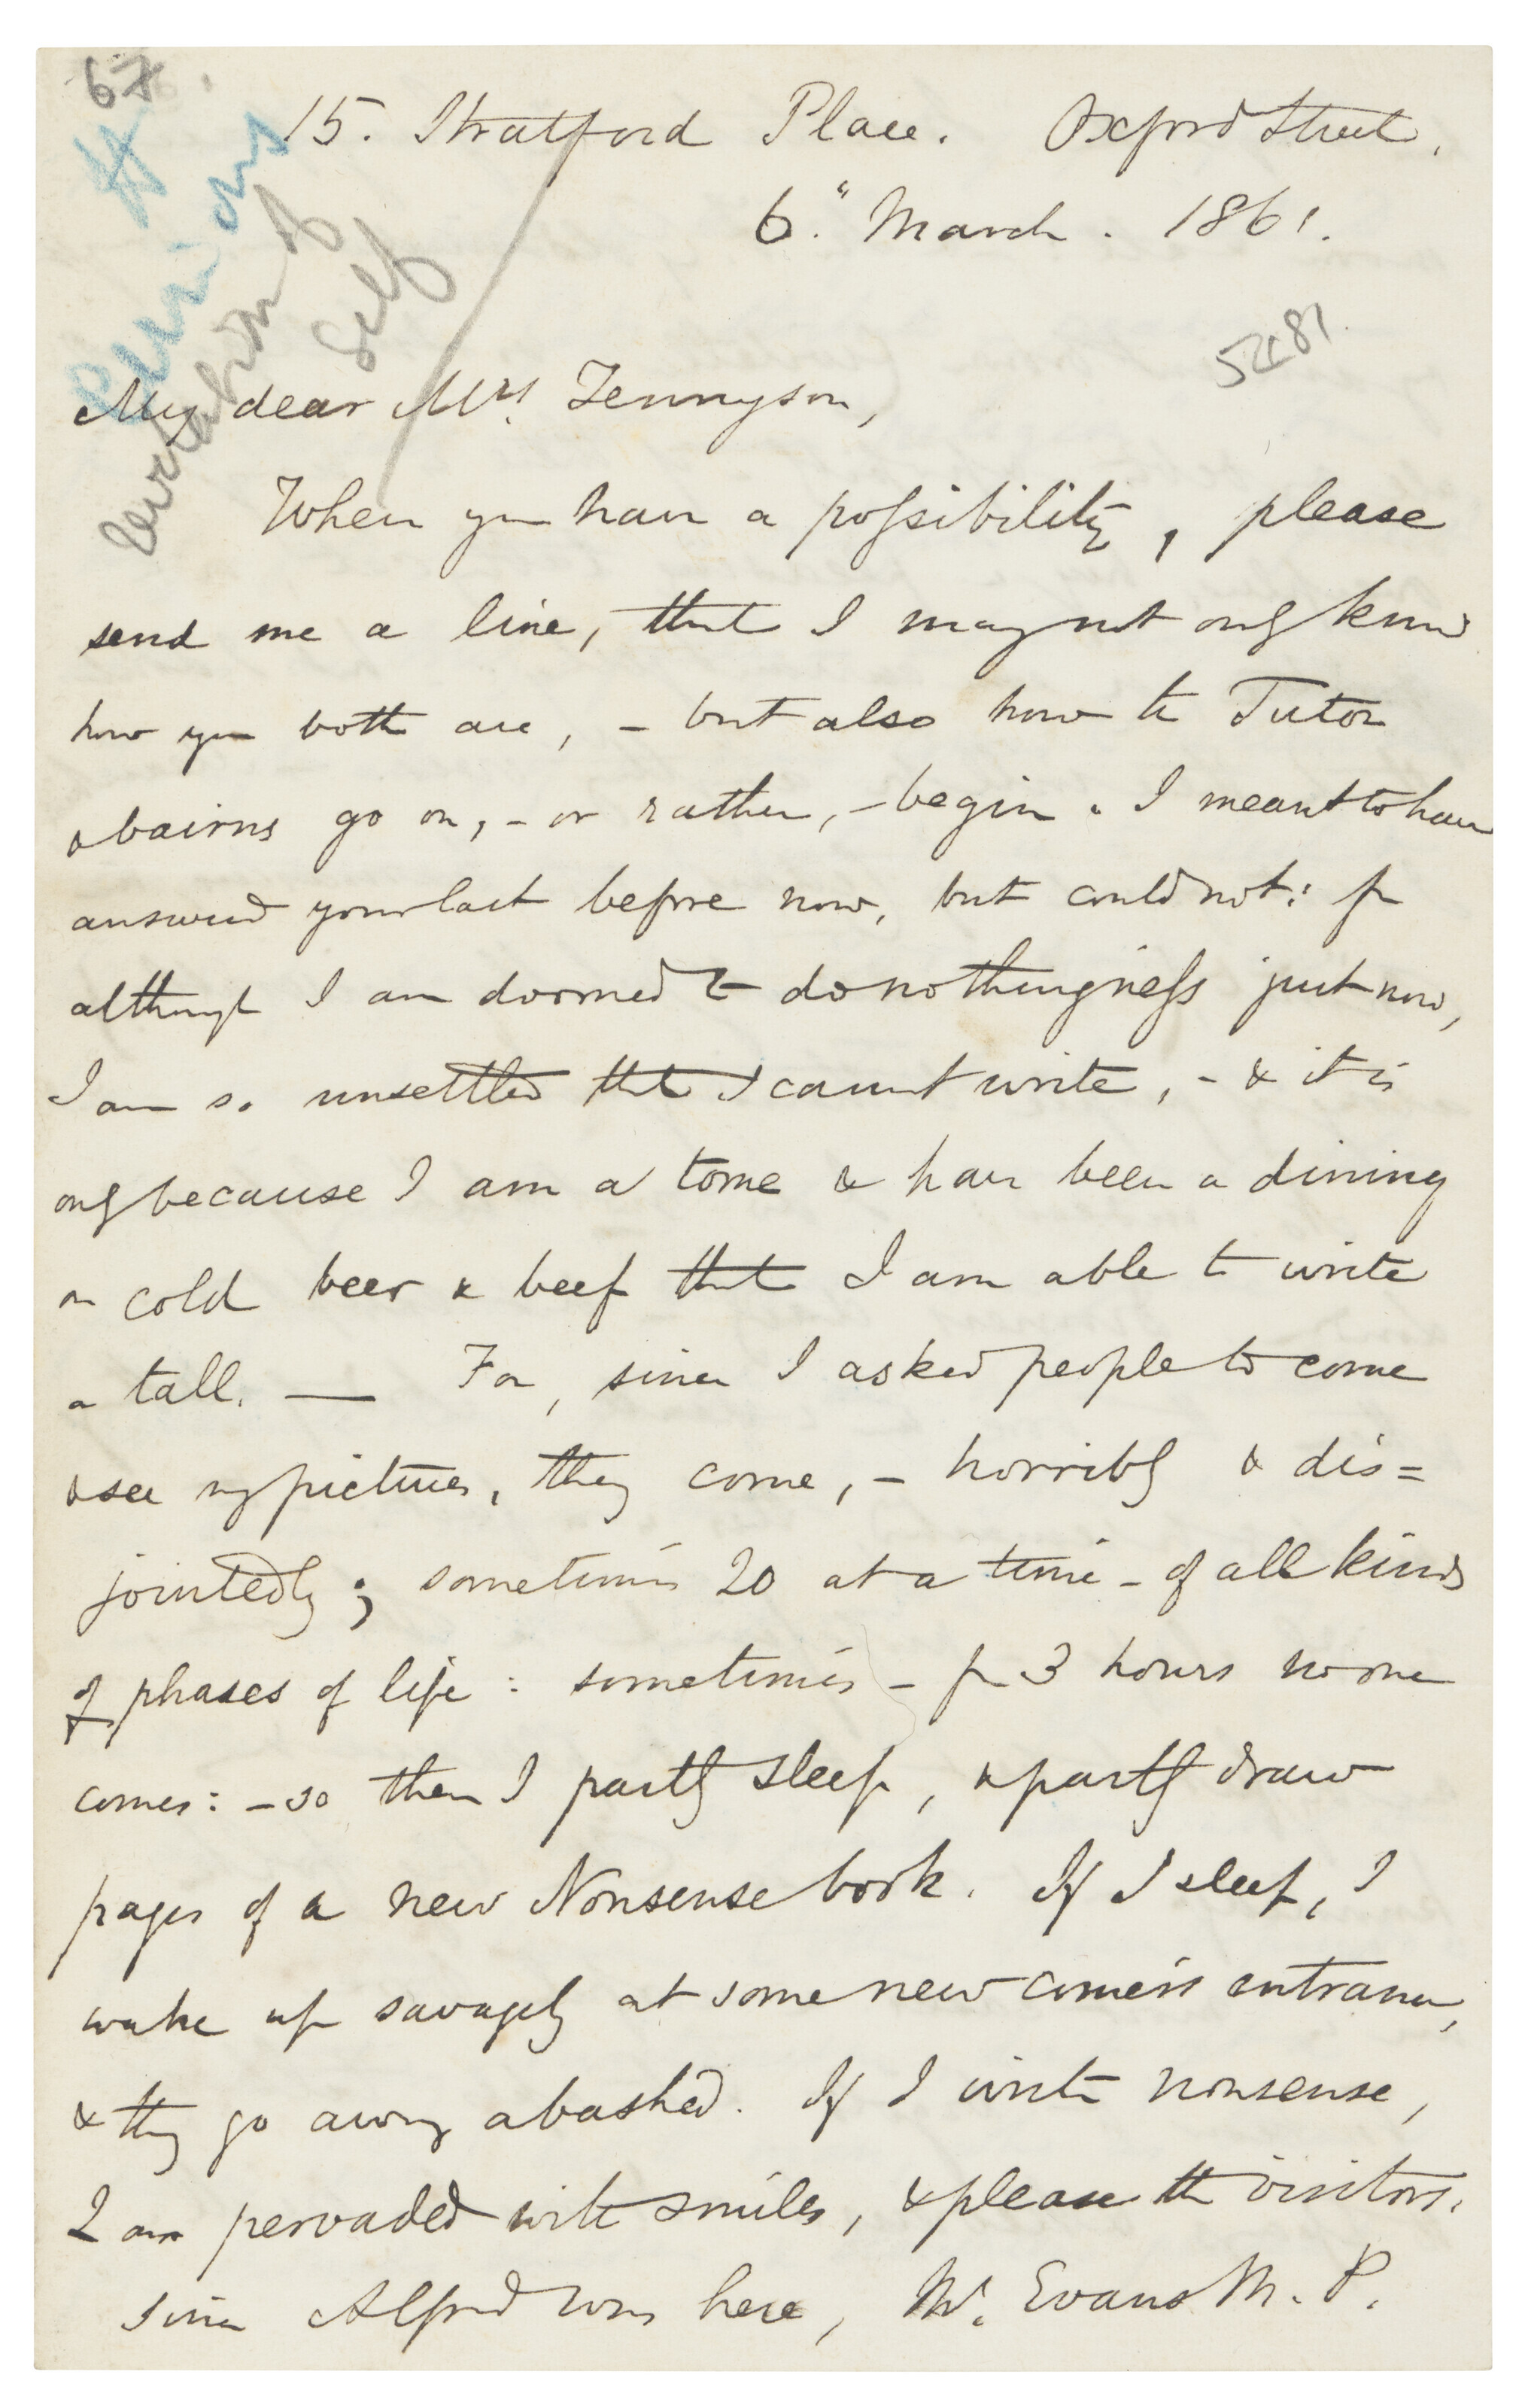 67.
15. Stratford Place. Oxford Street.
6." March. 1861.
5281.
Self
My dear Mrs. Tennyson,
When you have a possibility, please
send me a line, that I may not only know
how you both are, - but also how the Tutor
& bairns go on, - or rather, - begin. I meant to have
answered your last before now, but could not: for
although I am doomed to donothingness just now,
I am so unsettled that I cannot write, - & it is
only because I am a tome & have been a dining
on cold beer & beef that I am able to write
a tall. — For, since I asked people to come
& see my pictures, they come, - horribly & dis=
jointedly; sometimes 20 at a time - of all kinds
of phases of life: sometimes - for 3 hours no one
comes: - so then I partly sleep, & partly draw
pages of a new Nonsense book. If I sleep, I
wake up savagely at some new comer's entrance,
& they go away abashed. If I write nonsense,
I am pervaded with smiles, & please the visitors.
Since Alfred was here, Mr. Evans M.P.